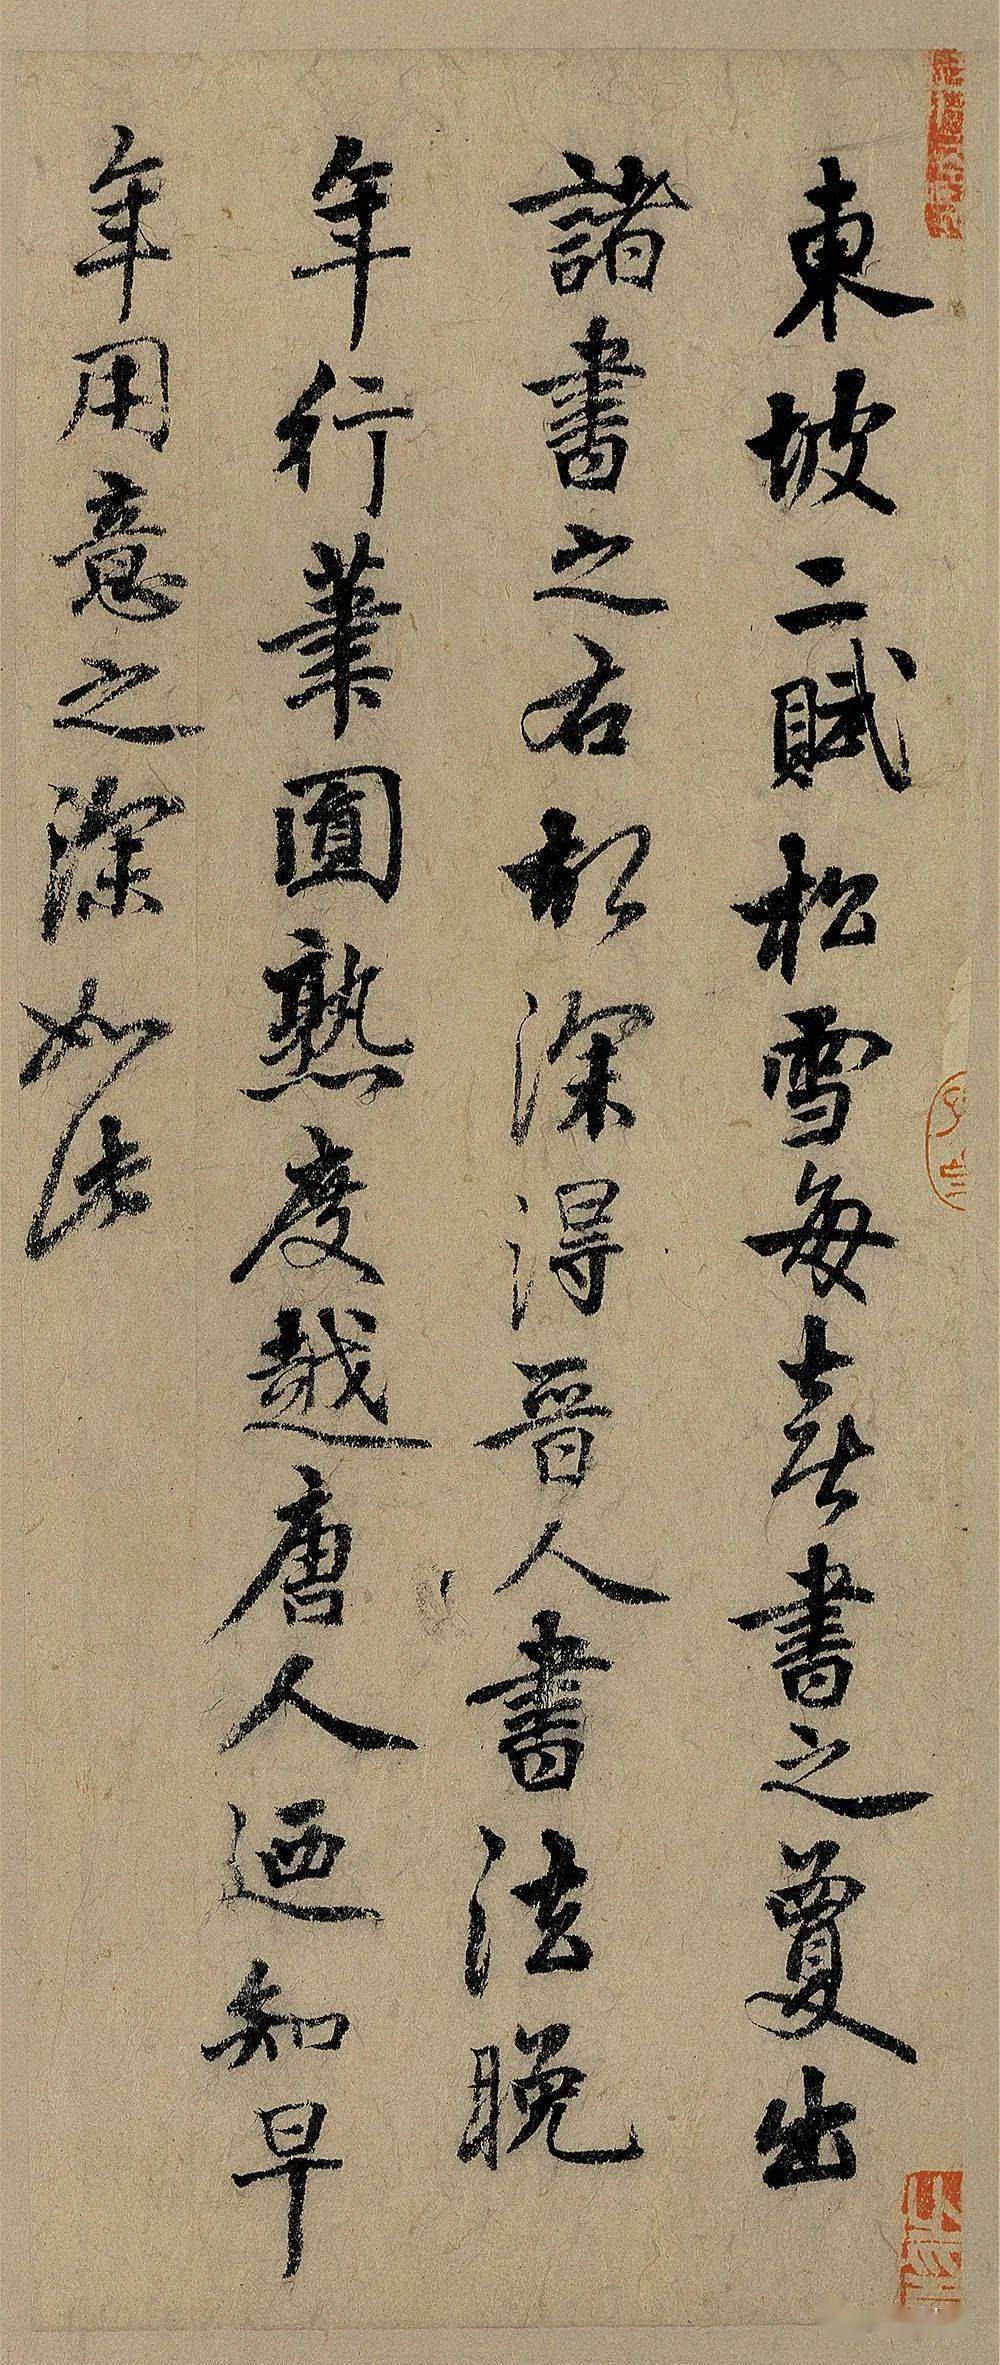 東坡二賦松雪每喜書之夐出
諸書之右却深得晉人書法晚
年行筆圓熟度越唐人迺知早
年用意之深如此